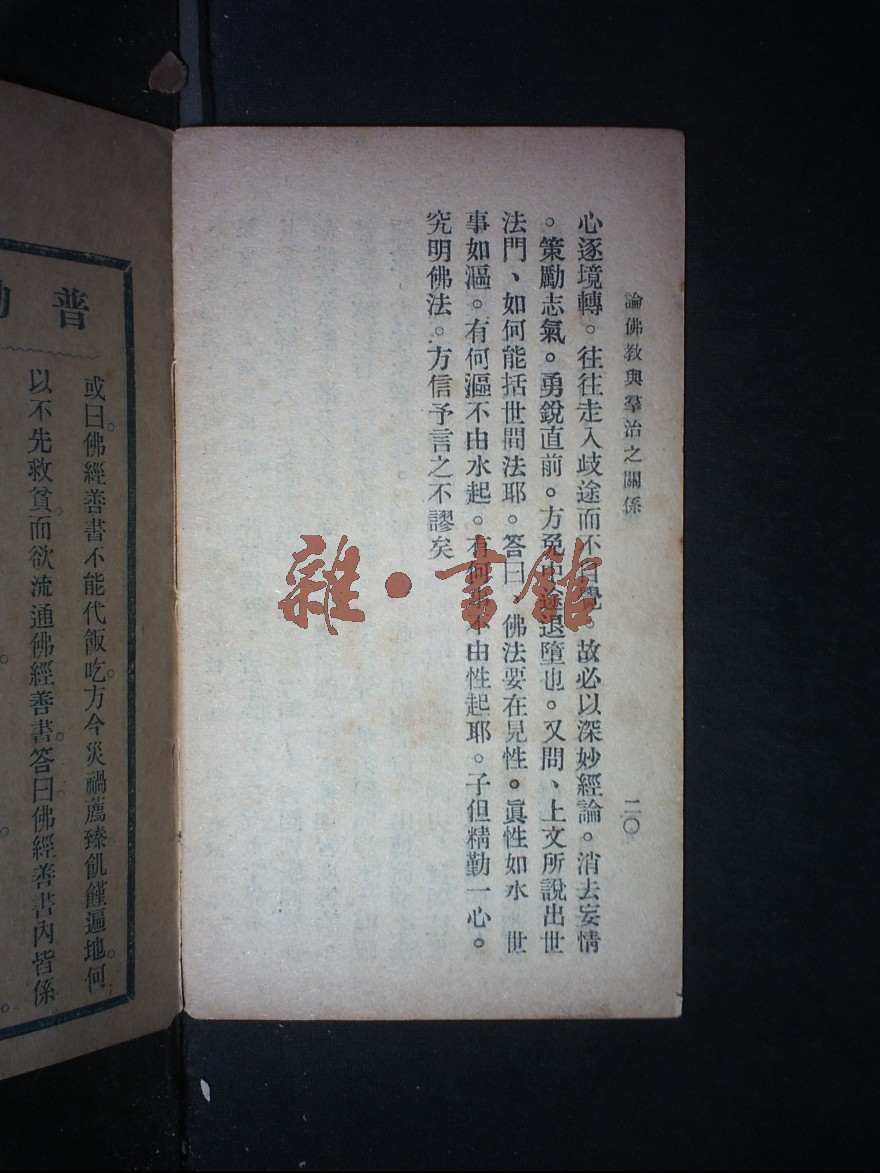 論佛教與羣治之關係
二〇
心逐境轉。往往走入歧途而不自覺 故必以深妙經論。消去妄情
。策勵志氣。勇銳直前。方免中途退墮也。又問、上文所說出世
法門、如何能括世間法耶。答曰、佛法要在見性。眞性如水 世
事如漚。有何漚不由水起。有何事不由性起耶。子但精勤一心。
究明佛法。方信予言之不謬矣
雜·書館
普
或曰佛經善書不能代飯吃方今災禍薦臻飢饉遍地何
以不先救貧而欲流通佛經善書答曰佛經善書內皆係